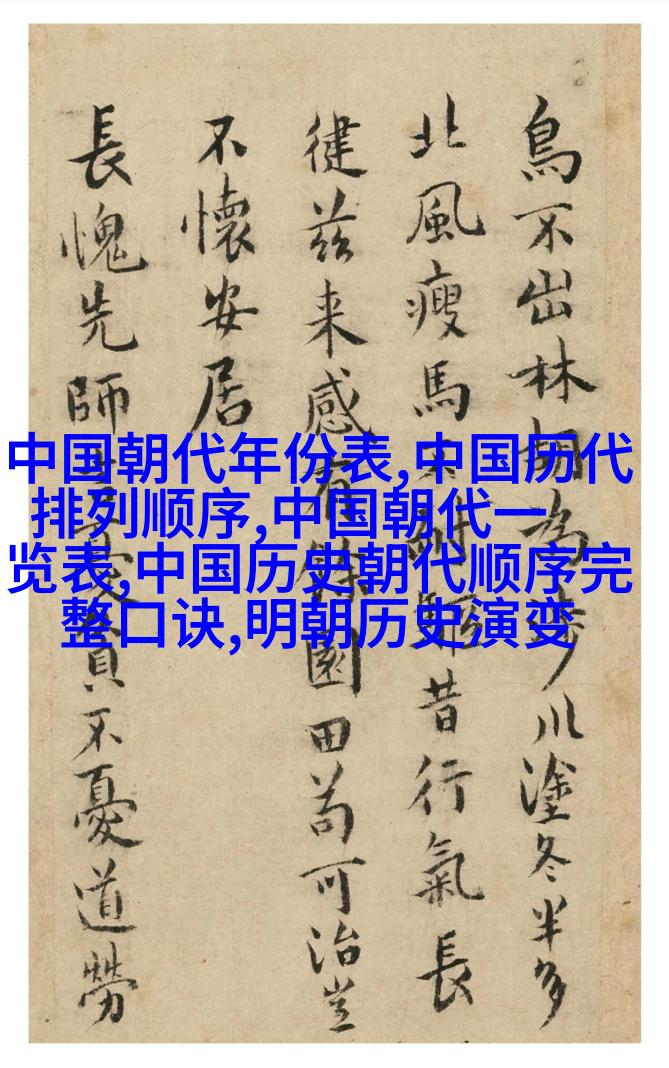 中国朝代年份表,中国历代
排列顺序,中国朝代一
览表,中国历史朝代顺序完
整口诀,明朝历史演变
鳥不出林胡為涉川塗冬半多
北風瘦馬昔行氣長
健茲来感有餘園田苟可治豈
不懷安居
長愧先師言憂貧不憂道勞